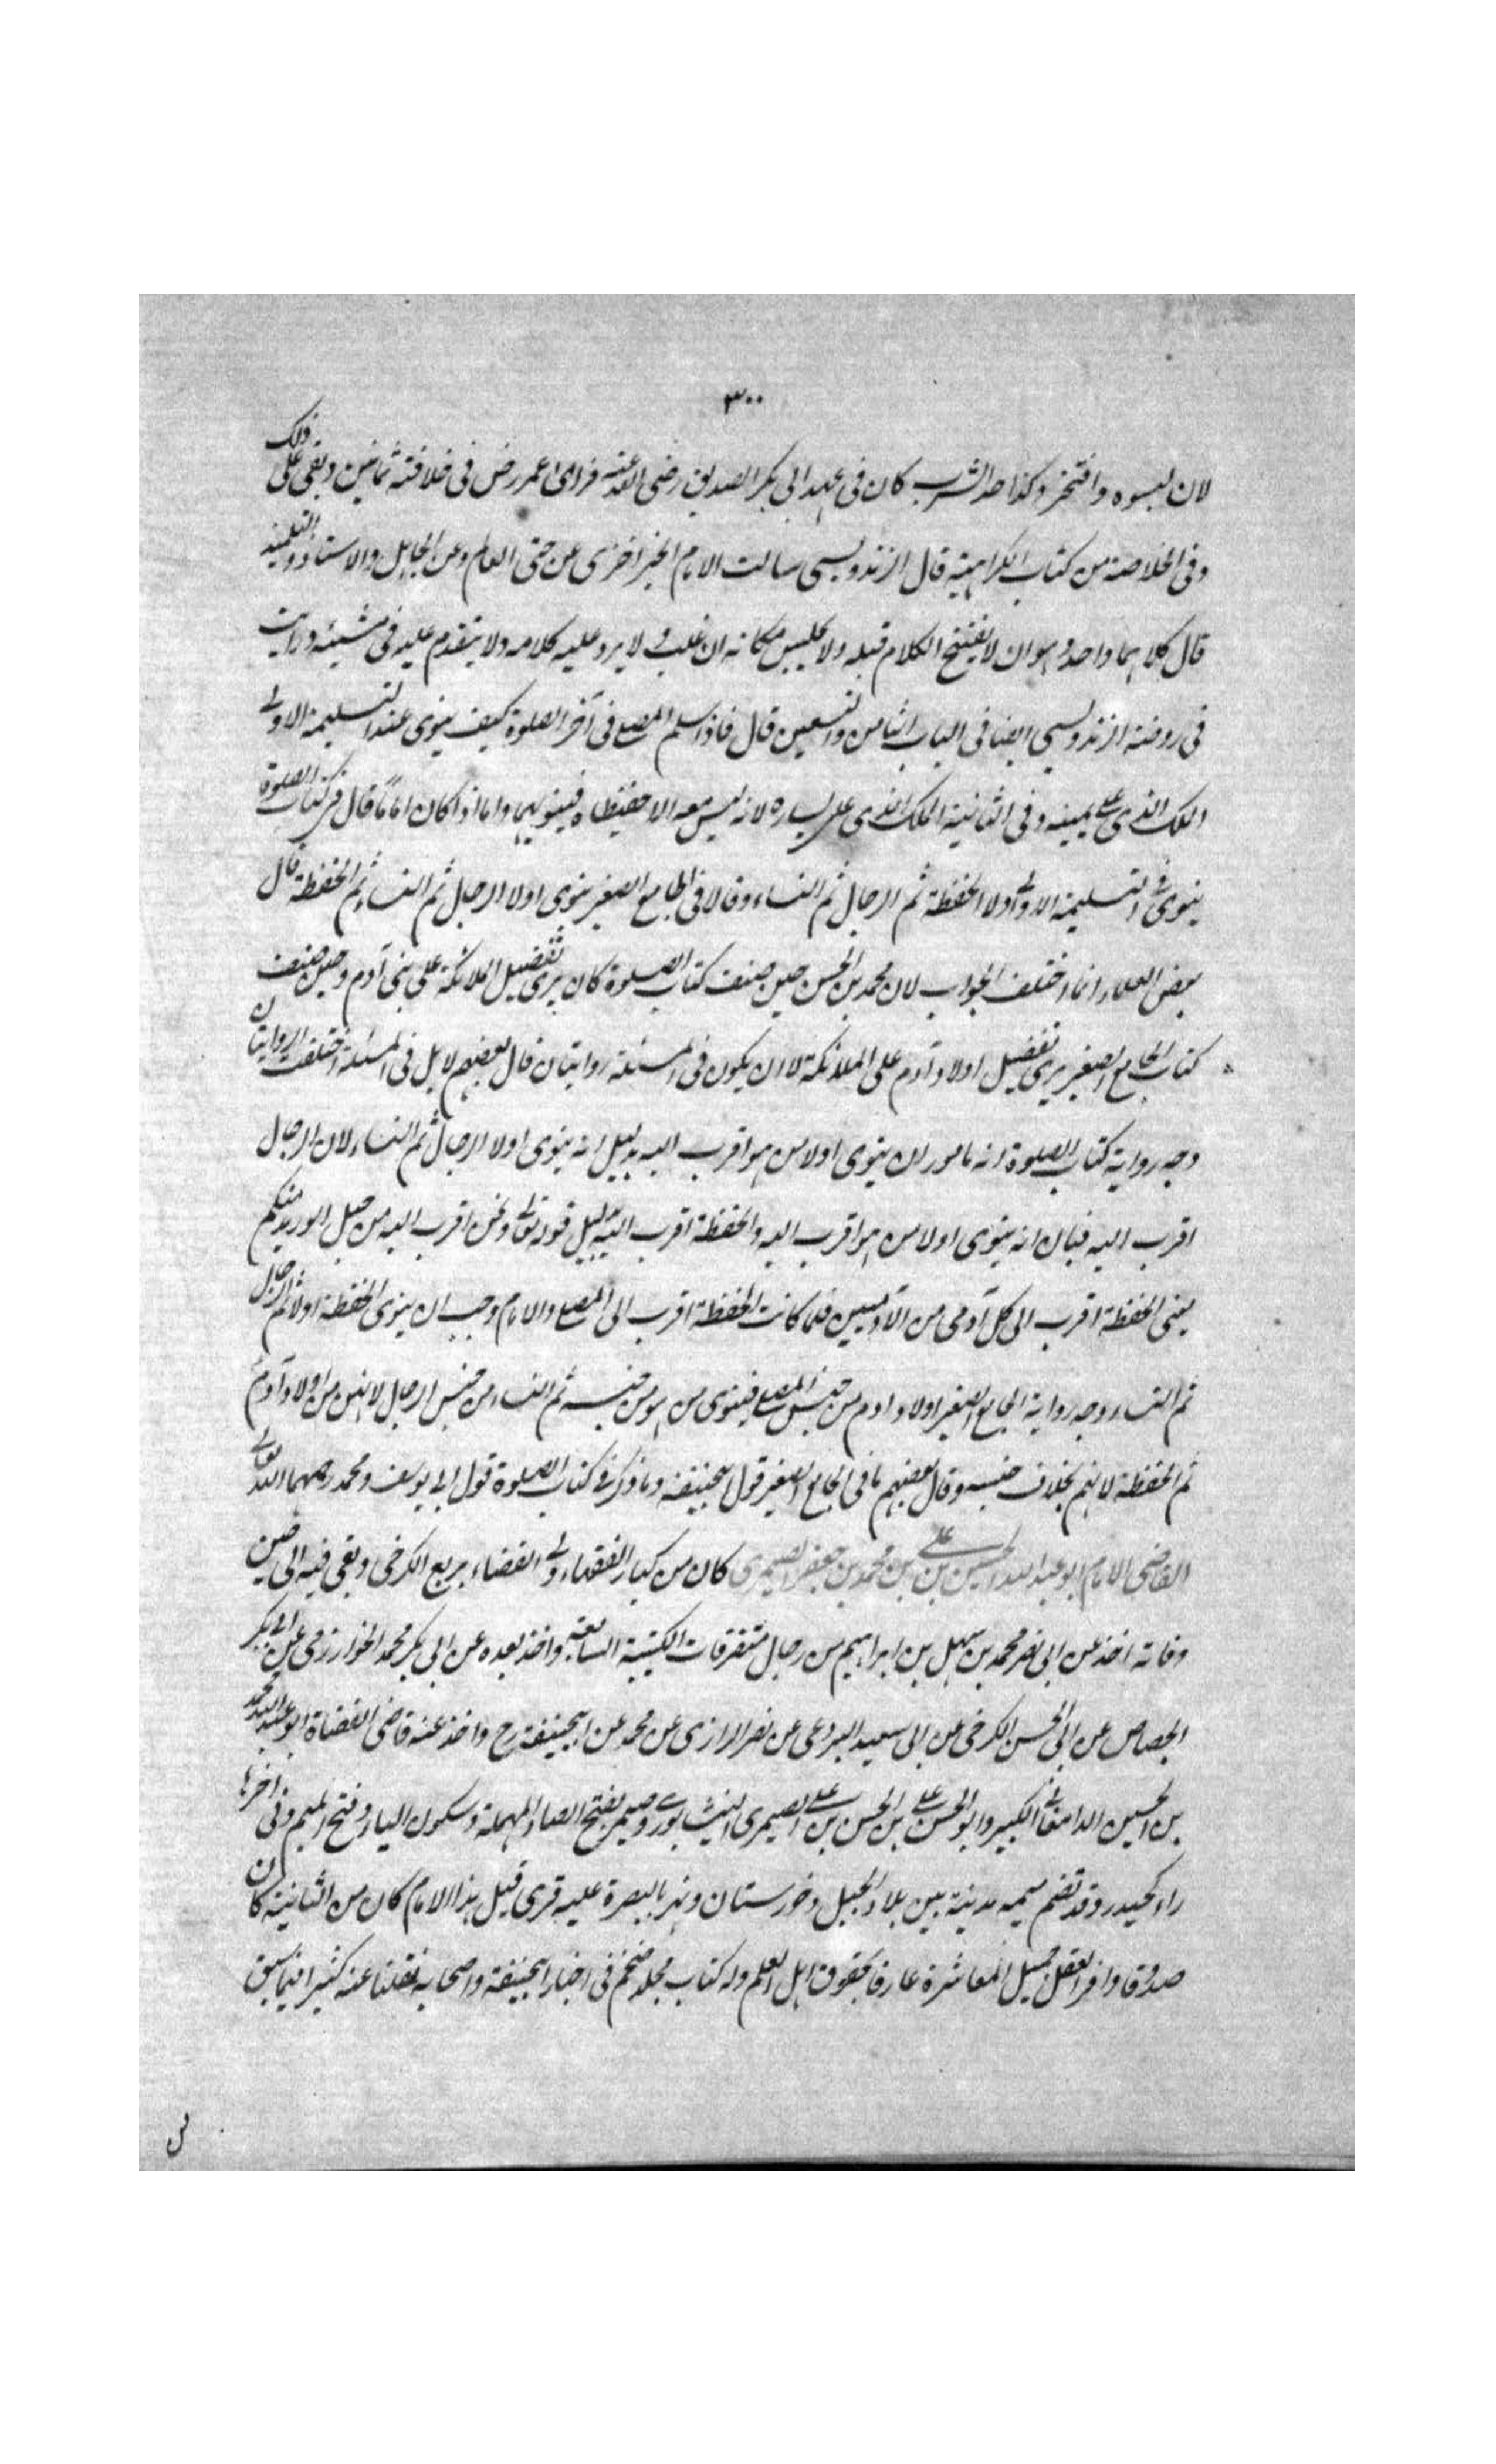 ٣٠٠
لان لبسوه وافتخر وكذا حد الشرب كان فى عهد ابى بكر الصديق رضى الله عنه فراى عمر رض فى خلافته ثمانين وبقى على ذلك
وفى الخلاصة من كتاب الكراهية قال الزندويسى سالت الامام الخيزاخزى عن حق العالم وعن الجاهل والاستاذ والتلميذ
قال كلاهما واحد وهو ان لا يفتتح الكلام قبله ولا يجلس مكانه ان غلب ولا يرد عليه كلامه ولا يتقدم عليه فى مشيئه ورايت
فى روضة الزندويسى ايضا فى الباب الثامن والتسعين قال فاذا سلم المصلى فى آخر الصلوة كيف ينوى عند التسليمة الاولى
الملك الذى على يمينه وفى الثانية الملك الذى على يساره لانه ليس معه الا حفيظاه فينويهما واما اذا كان اماما قال فى كتاب الصلوة
ينوى فى التسليمة الاولى اولا الحفظة ثم الرجال ثم النساء وقالا فى الجامع الصغير ينوى اولا الرجال ثم النساء ثم الحفظة قال
بعض العلماء انما اختلف الجواب لان محمد بن الحسن حين صنف كتاب الصلوة كان يرى تفضيل الملائكة على بنى آدم وحين صنف
كتاب الجامع الصغير يرى تفضيل اولاد آدم على الملائكة لا ان يكون فى المسئلة روايتان قال بعضهم لا بل فى المسئلة اختلفت الروايتان
وجه رواية كتاب الصلوة انه مامور ان ينوى اولا من هو اقرب اليه بدليل انه ينوى اولا الرجال ثم النساء لان الرجال
اقرب اليه فبان انه ينوى اولا من هو اقرب اليه والحفظة اقرب اليه بدليل قوله تعالى ونحن اقرب اليه من حبل الوريد منكم
يعنى الحفظة اقرب الى كل آدمى من الآدميين فلما كانت الحفظة اقرب الى المصلى والامام وجب ان ينوى الحفظة اولا ثم الرجال
ثم النساء وجه رواية الجامع الصغير اولاد ادم من جنس المصلى فينوى من هو من جنسه ثم النساء من جنس الرجال لانهن من اولاد آدم
ثم الحفظة لانهم بخلاف جنسه وقال بعضهم ما فى الجامع الصغير قول ابيحنيفة وما ذكر فى كتاب الصلوة قول ابى يوسف ومحمد رحمهما الله تعالى
القاضى الامام ابو عبد الله الحسين بن على بن محمد بن جعفر الصيمرى كان من كبار الفقهاء ولى القضاء بربع الكرخى وبقى فيه الى حين
وفاته اخذ عن ابى نصر محمد بن سهل بن ابراهيم من رجال متفرقات الكتيبة السابعة واخذ بعده عن ابى بكر محمد الخوارزمى عن ابى بكر
الجصاص عن ابى الحسن الكرخى عن ابى سعيد البردعى عن نصر الرازى عن محمد عن ابيحنيفة رح واخذ عنه قاضى القضاة ابو عبد الله محمد
بن الحسين الدامغانى الكبير وابو الحسن على بن الحسن بن على الصيمرى النيشابورى وصيمر بفتح الصاد المهملة وسكون الياء وفتح الميم وفى اخرها
راء كحيدر وقد تضم ميمه مدينة بين بلاد الجبل وخورستان ونهر بالبصرة عليه قرى قيل هذا الامام كان من الثانية كان
صدوقا وافر العقل جميل المعاشرة عارفا بحقوق اهل العلم وله كتاب مجلد ضخم فى اخبار ابيحنيفة واصحابه نقلنا عنه كثيرا فيما سبق